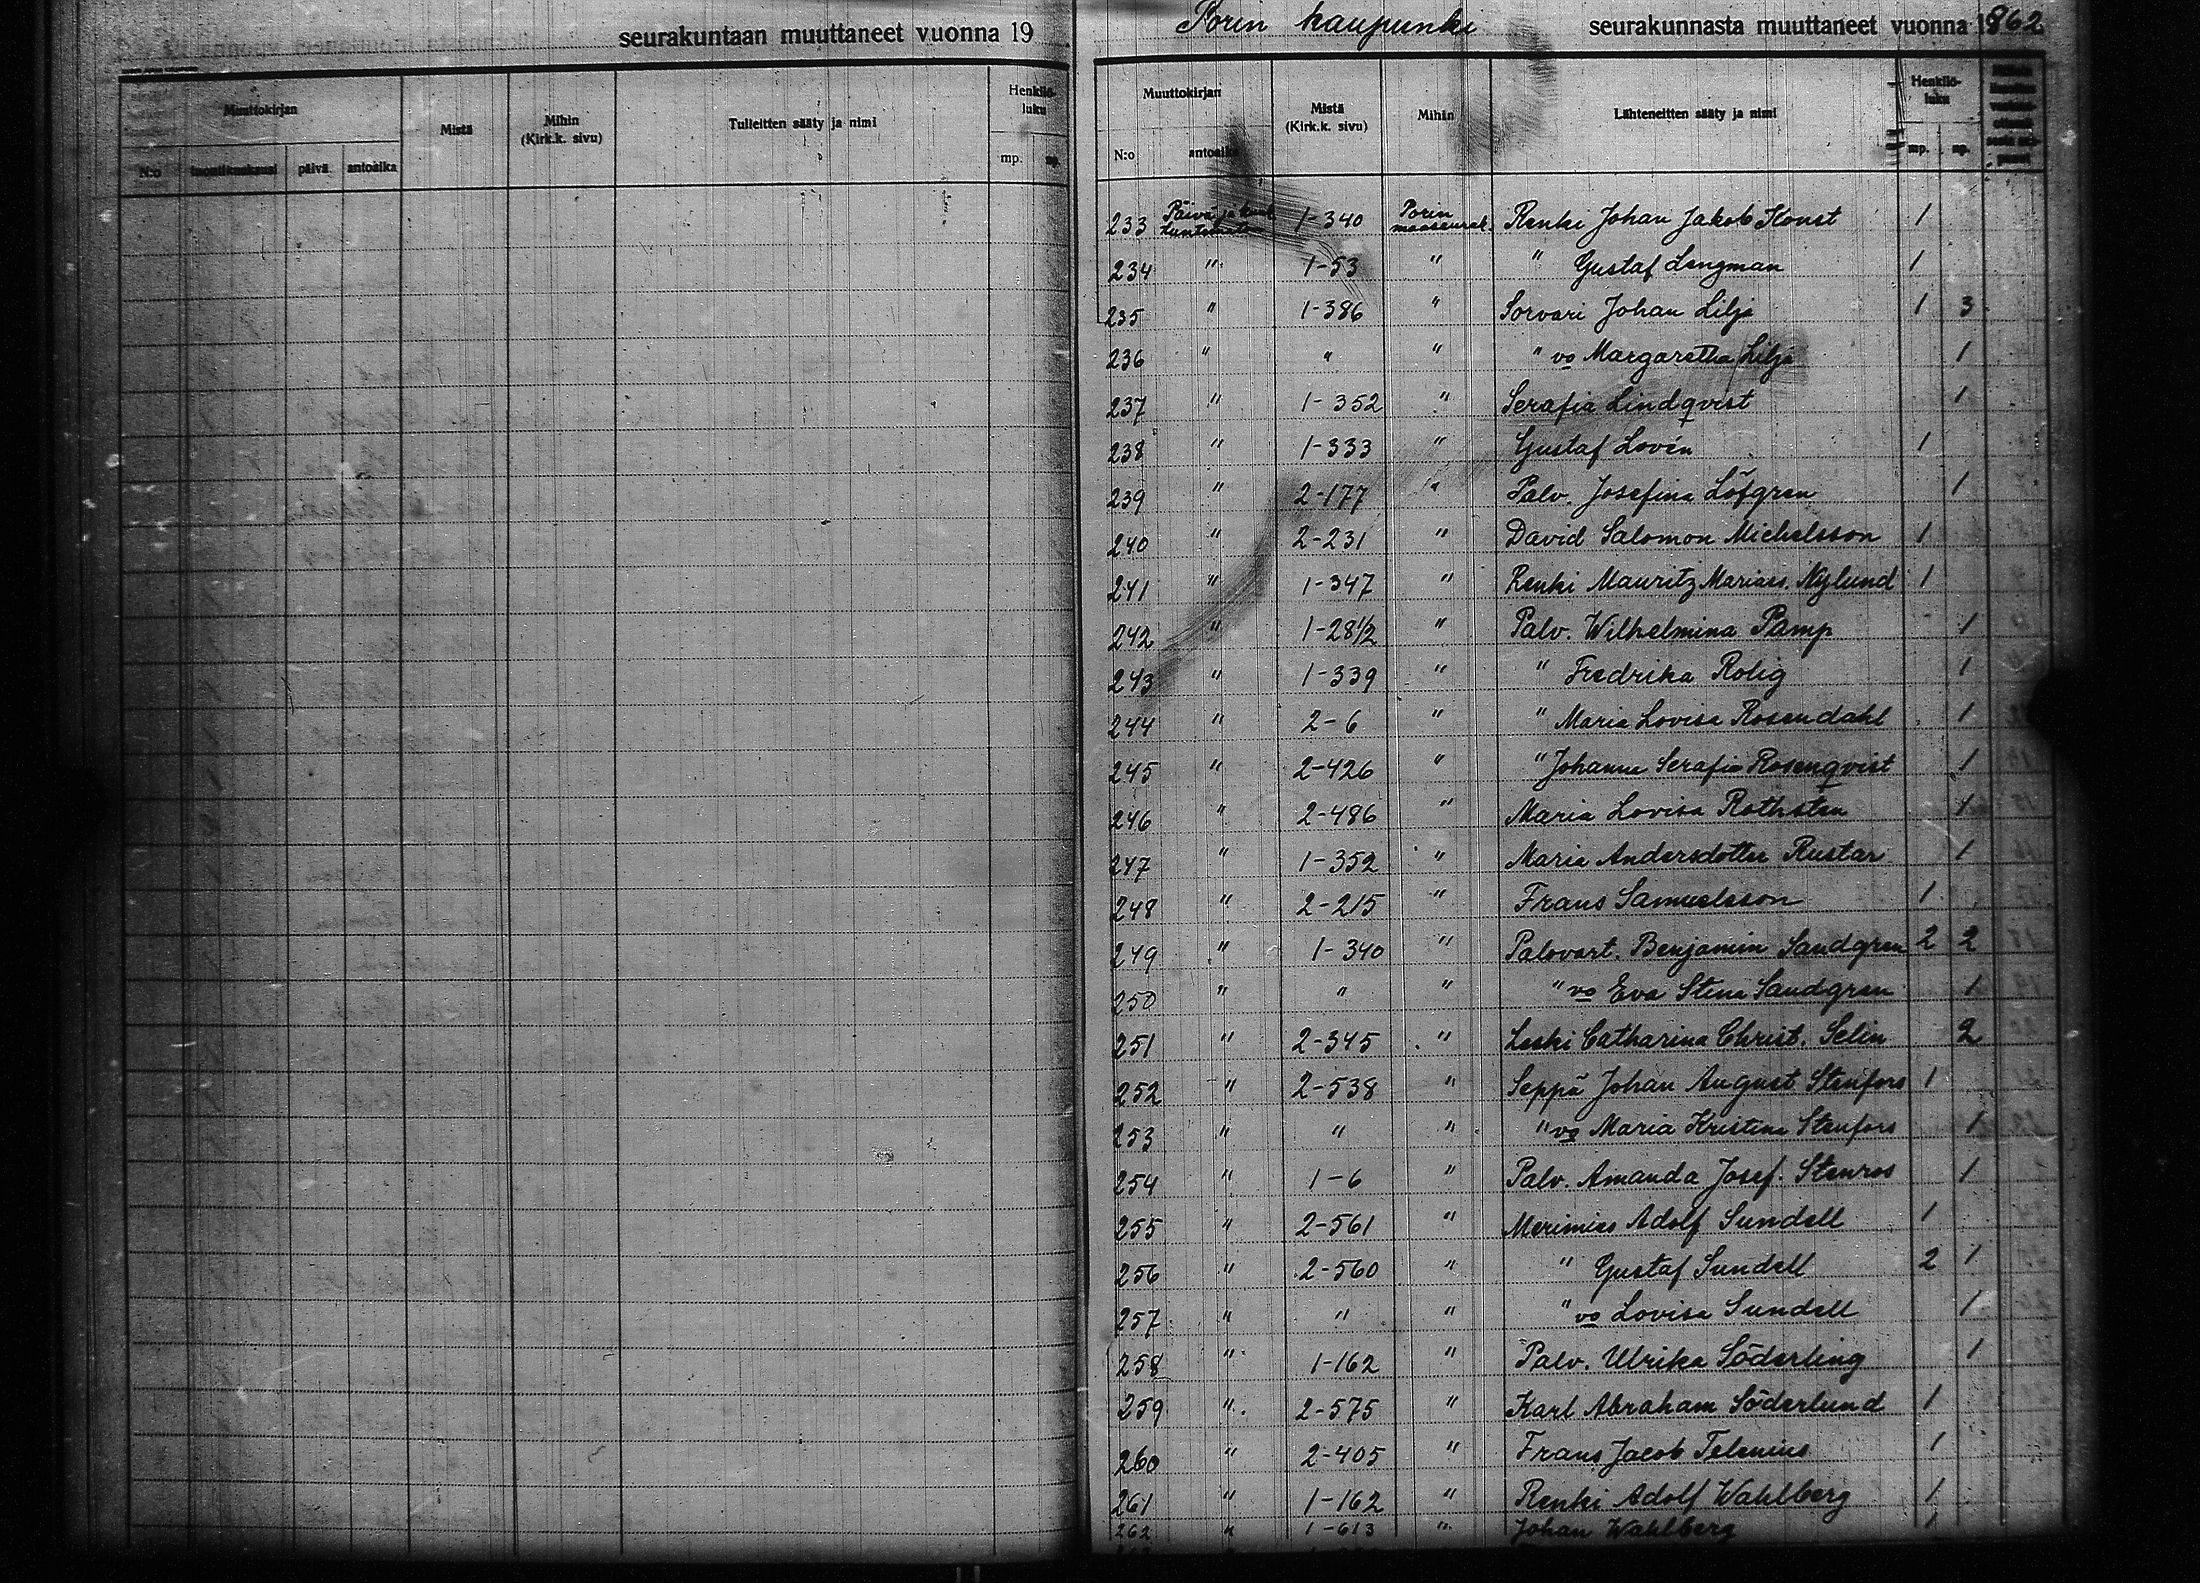 seurakuntaan muuttaneet vuonna 19
Muuttokirjan Mistä Mihin (Kirk.k. sivu) Tulleitten sääty ja nimi Henkilö-luku
N:o tuontikuukausi päivä antoaika mp. np.
Porin kaupunki seurakunnasta muuttaneet vuonna 1862
Muuttokirjan Mistä (Kirk.k. sivu) Mihin Lähteneitten sääty ja nimi Henkilö-luku
N:o antoaika mp. np.
233 Päivä ja kuuk. tuntematon 1-340 Porin maaseurak. Renki Johan Jakob Konst 1
234 " 1-53 " " Gustaf Lengman 1
235 " 1-386 " Sorvari Johan Lilja 1 3
236 " " " " vo Margaretha Lilja 1
237 " 1-352 " Serafia Lindqvist 1
238 " 1-333 " Gustaf Lovén 1
239 " 2-177 " Palv. Josefina Löfgren 1
240 " 2-231 " David Salomon Michelsson 1
241 " 1-347 " Renki Mauritz Mariass. Nylund 1
242 " 1-28½ " Palv. Wilhelmina Pamp 1
243 " 1-339 " " Fredrika Rolig 1
244 " 2-6 " " Maria Lovisa Rosendahl 1
245 " 2-426 " " Johanna Serafia Rosenqvist 1
246 " 2-486 " Maria Lovisa Rothsten 1
247 " 1-352 " Maria Andersdotter Rustar 1
248 " 2-215 " Frans Samuelsson 1
249 " 1-340 " Palovart. Benjamin Sandgren 2 2
250 " " " " vo Eva Stina Sandgren 1
251 " 2-345 " Leski Catharina Christ. Selin 2
252 " 2-538 " Seppä Johan August Stenfors 1
253 " " " " vo Maria Kristina Stenfors 1
254 " 1-6 " Palv. Amanda Josef. Stenros 1
255 " 2-561 " Merimies Adolf Sundell 1
256 " 2-560 " " Gustaf Sundell 2 1
257 " " " " vo Lovisa Sundell 1
258 " 1-162 " Palv. Ulrika Söderling 1
259 " 2-575 " Karl Abraham Söderlund 1
260 " 2-405 " Frans Jacob Telenius 1
261 " 1-162 " Renki Adolf Wahlberg 1
262 " 1-613 " Johan Wahlberg 1